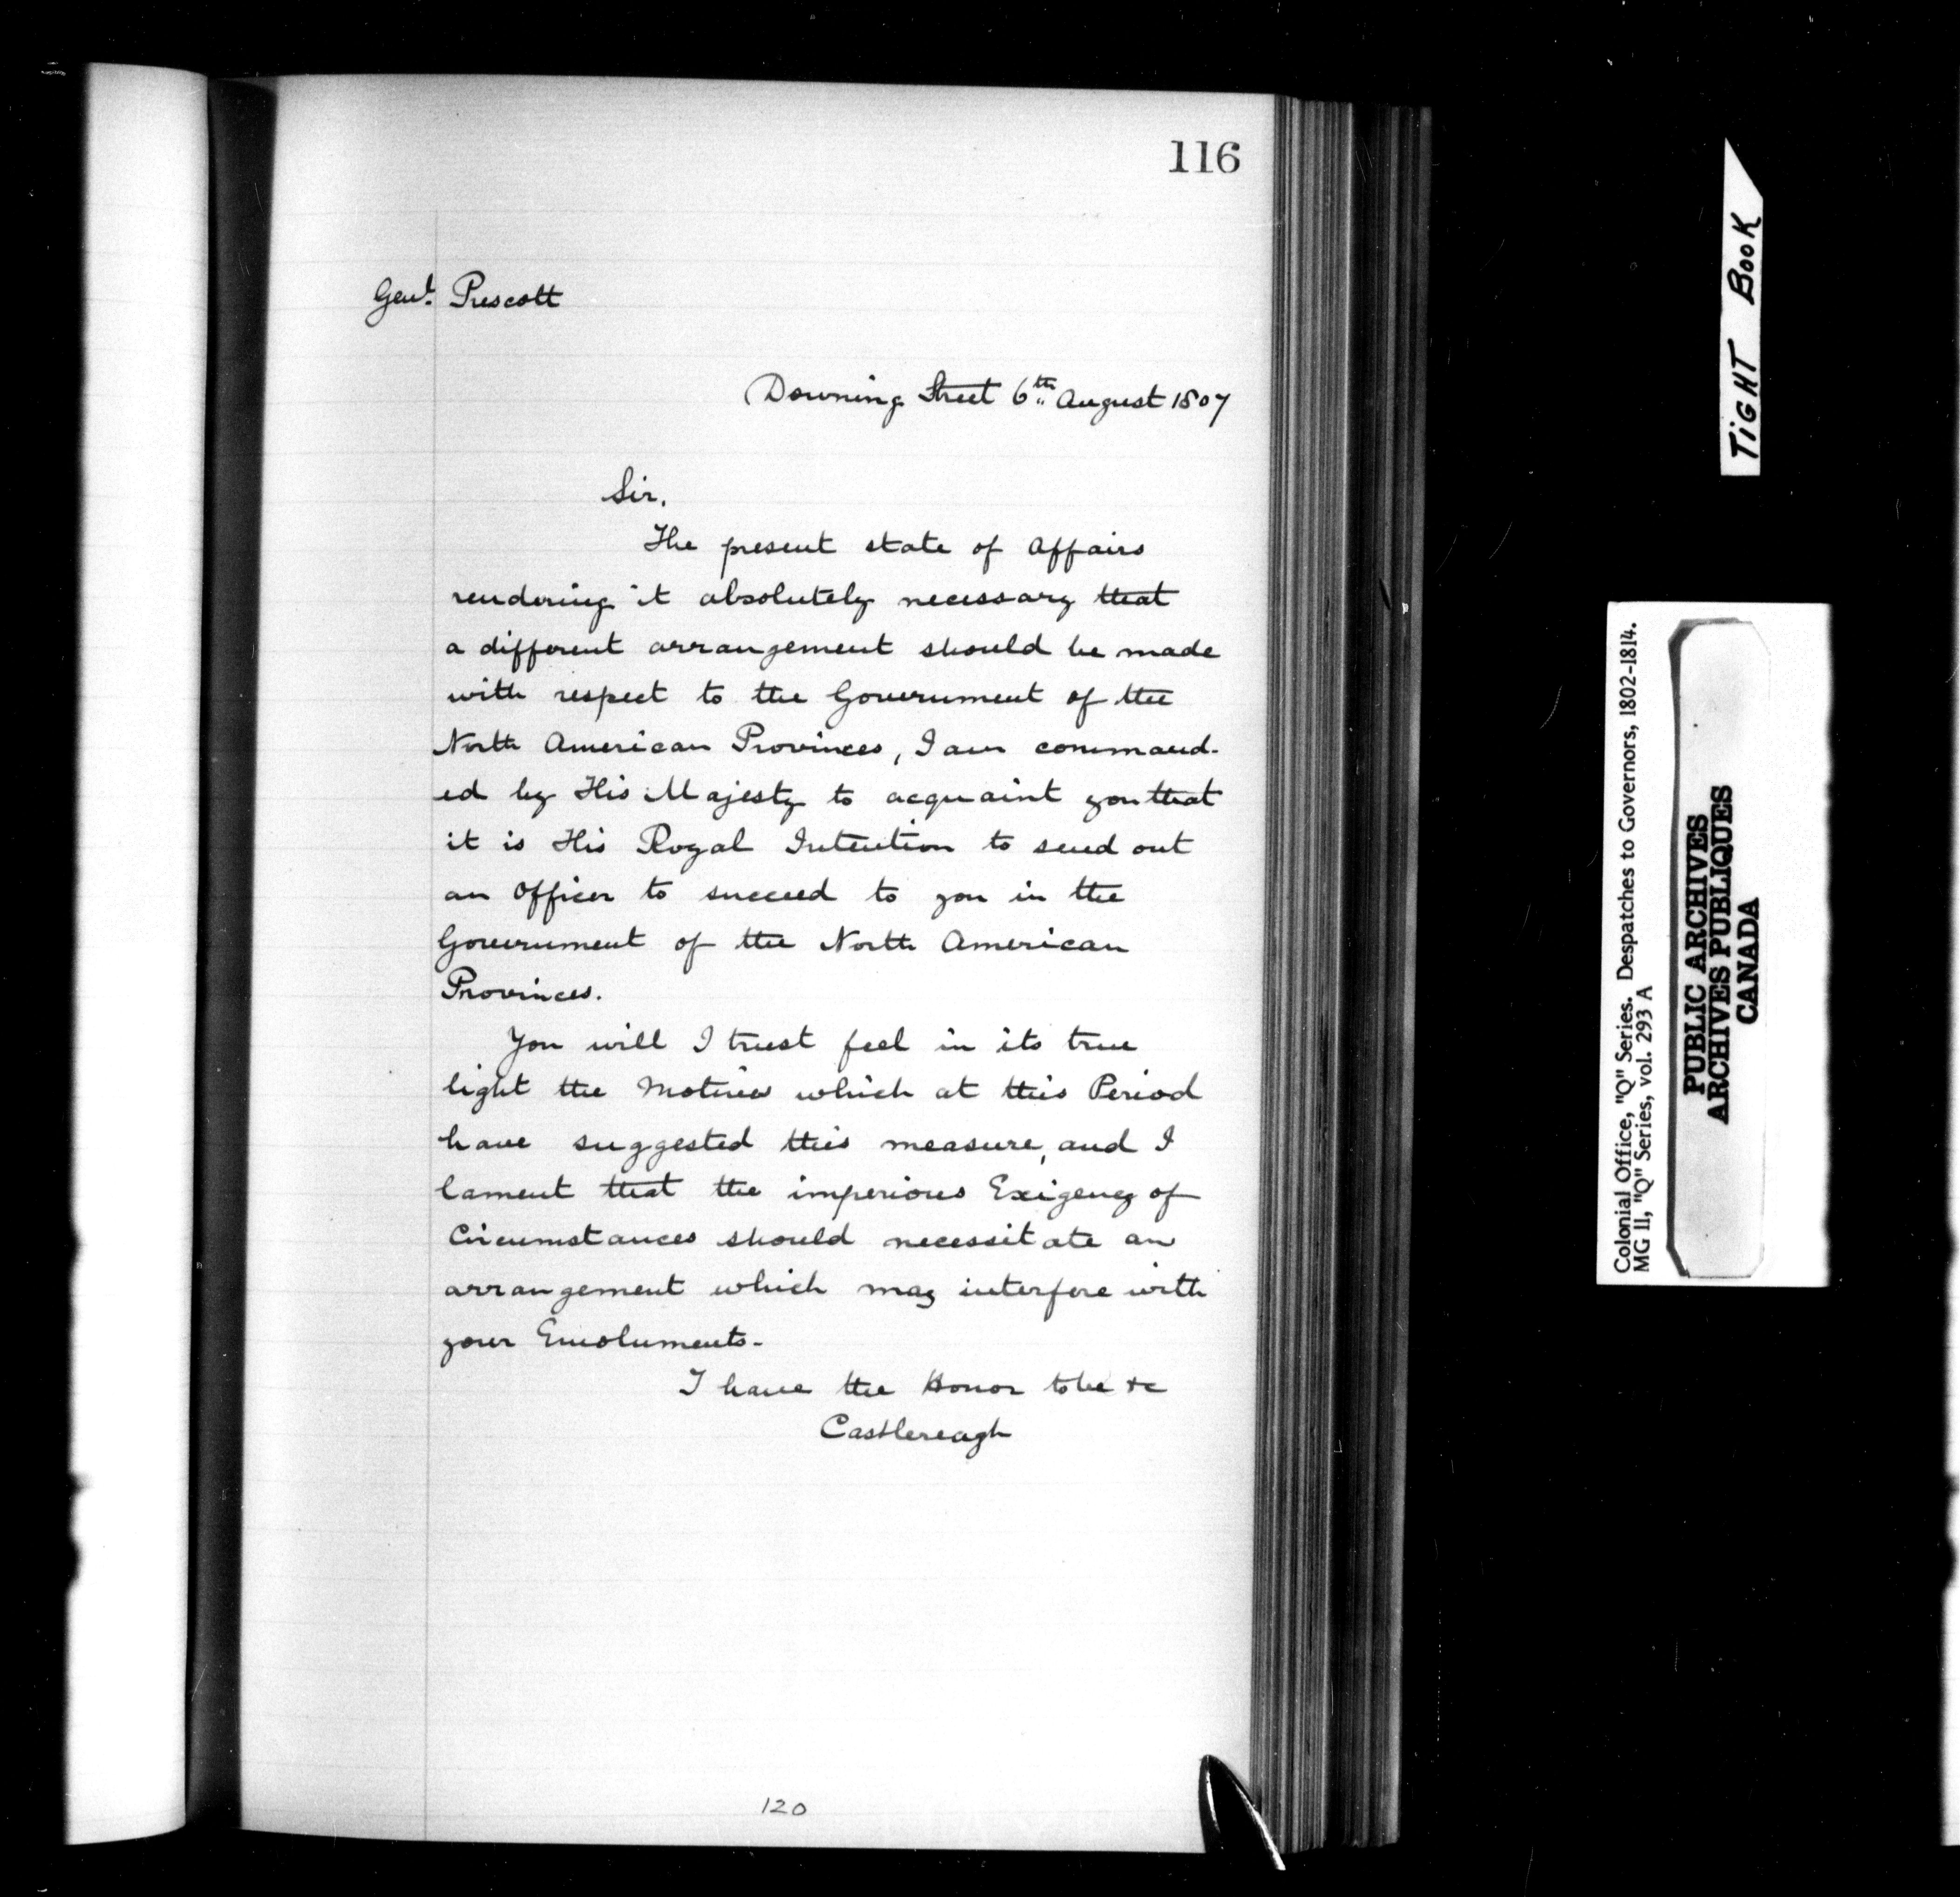 116
Genl. Prescott
Downing Street 6th August 1807
Sir,
The present state of Affairs
rendering it absolutely necessary that
a different arrangement should be made
with respect to the Government of the
North American Provinces, I am command-
ed by His Majesty to acquaint you that
it is His Royal Intention to send out
an Officer to succeed to you in the
Government of the North American
Provinces.
You will I trust feel in its true
light the Motives which at this Period
have suggested this measure, and I
lament that the imperious Exigency of
Circumstances should necessitate an
arrangement which may interfere with
your Emoluments-
I have the Honor to be &c
Castlereagh
120
TIGHT BOOK
Colonial Office, "Q" Series. Despatches to Governors, 1802-1814.
MG II, "Q" Series, vol. 293 A
PUBLIC ARCHIVES
ARCHIVES PUBLIQUES
CANADA